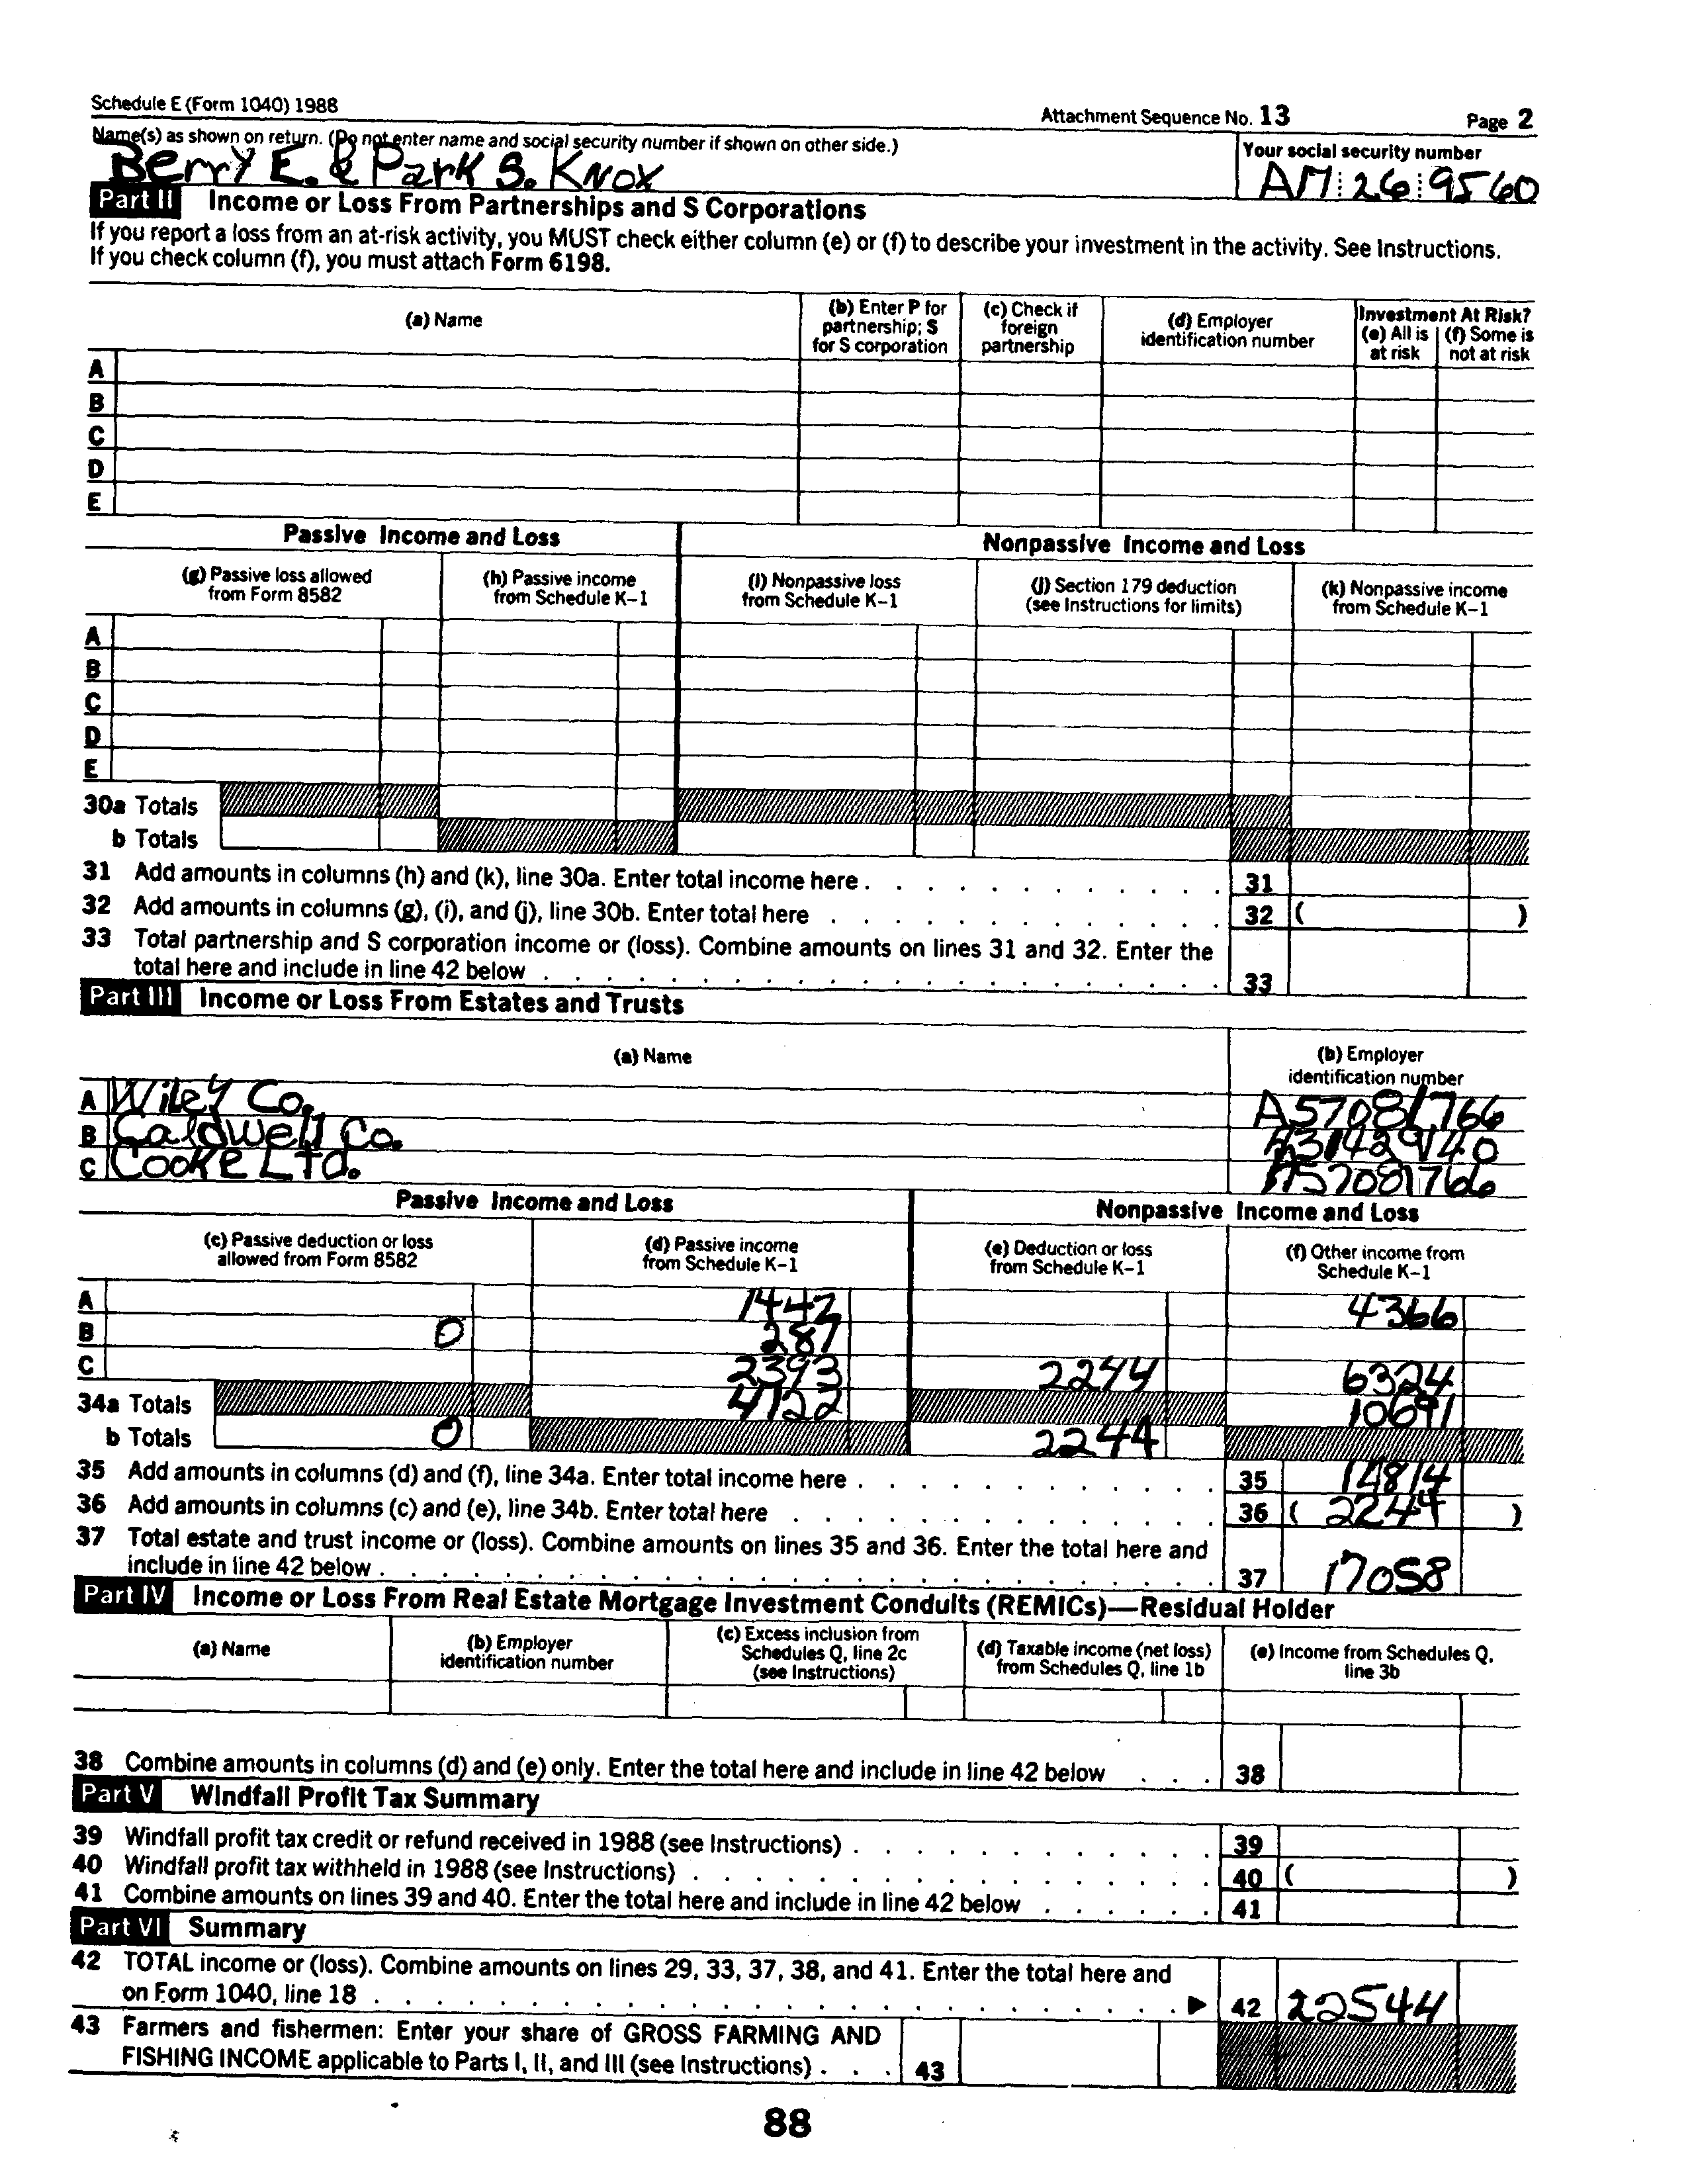 Schedule E (Form 1040) 1988 Attachment Sequence No. 13 Page 2
Name(s) as shown on return. (Do not enter name and social security number if shown on other side.) Your social security number
Berry E. & Park S. Knox AM 26 9560
Part II Income or Loss From Partnerships and S Corporations
If you report a loss from an at-risk activity, you MUST check either column (e) or (f) to describe your investment in the activity. See Instructions.
If you check column (f), you must attach Form 6198.
(a) Name
(b) Enter P for partnership; S for S corporation
(c) Check if foreign partnership
(d) Employer identification number
Investment At Risk?
(e) All is at risk
(f) Some is not at risk
A
B
C
D
E
Passive Income and Loss Nonpassive Income and Loss
(g) Passive loss allowed from Form 8582
(h) Passive income from Schedule K-1
(i) Nonpassive loss from Schedule K-1
(j) Section 179 deduction (see Instructions for limits)
(k) Nonpassive income from Schedule K-1
A
B
C
D
E
30a Totals
b Totals
31 Add amounts in columns (h) and (k), line 30a. Enter total income here . . . 31
32 Add amounts in columns (g), (i), and (j), line 30b. Enter total here . . . 32 ( )
33 Total partnership and S corporation income or (loss). Combine amounts on lines 31 and 32. Enter the
total here and include in line 42 below . . . 33
Part III Income or Loss From Estates and Trusts
(a) Name
(b) Employer identification number
A Wiley Co. A57081766
B Caldwell Co. A31429140
C Cooke Ltd. A57081766
Passive Income and Loss Nonpassive Income and Loss
(c) Passive deduction or loss allowed from Form 8582
(d) Passive income from Schedule K-1
(e) Deduction or loss from Schedule K-1
(f) Other income from Schedule K-1
A 1442 4366
B 0 287
C 2393 2244 6324
34a Totals 4122 10691
b Totals 0 2244
35 Add amounts in columns (d) and (f), line 34a. Enter total income here . . . 35 14814
36 Add amounts in columns (c) and (e), line 34b. Enter total here . . . 36 ( 2244 )
37 Total estate and trust income or (loss). Combine amounts on lines 35 and 36. Enter the total here and
include in line 42 below . . . 37 17058
Part IV Income or Loss From Real Estate Mortgage Investment Conduits (REMICs)—Residual Holder
(a) Name
(b) Employer identification number
(c) Excess inclusion from Schedules Q, line 2c (see Instructions)
(d) Taxable income (net loss) from Schedules Q, line 1b
(e) Income from Schedules Q, line 3b
38 Combine amounts in columns (d) and (e) only. Enter the total here and include in line 42 below . . . 38
Part V Windfall Profit Tax Summary
39 Windfall profit tax credit or refund received in 1988 (see Instructions) . . . 39
40 Windfall profit tax withheld in 1988 (see Instructions) . . . 40 ( )
41 Combine amounts on lines 39 and 40. Enter the total here and include in line 42 below . . . 41
Part VI Summary
42 TOTAL income or (loss). Combine amounts on lines 29, 33, 37, 38, and 41. Enter the total here and
on Form 1040, line 18 . . . ▶ 42 22544
43 Farmers and fishermen: Enter your share of GROSS FARMING AND
FISHING INCOME applicable to Parts I, II, and III (see Instructions) . . . 43
88